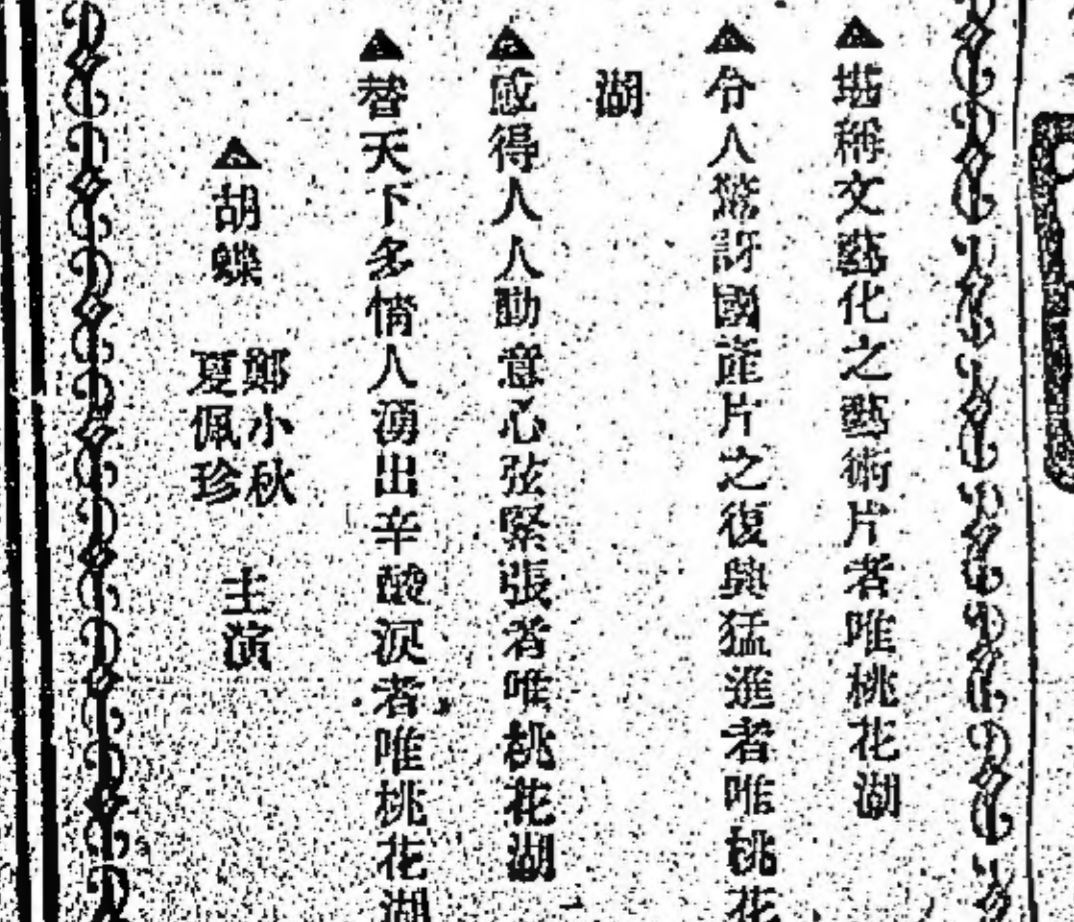 ▲堪稱文藝化之藝術片者唯桃花湖
▲令人驚訝國產片之復興猛進者唯桃花
湖
▲感得人人動意心弦緊張者唯桃花湖
▲替天下多情人湧出辛酸淚者唯桃花湖
▲胡蝶 鄭小秋 夏佩珍 主演